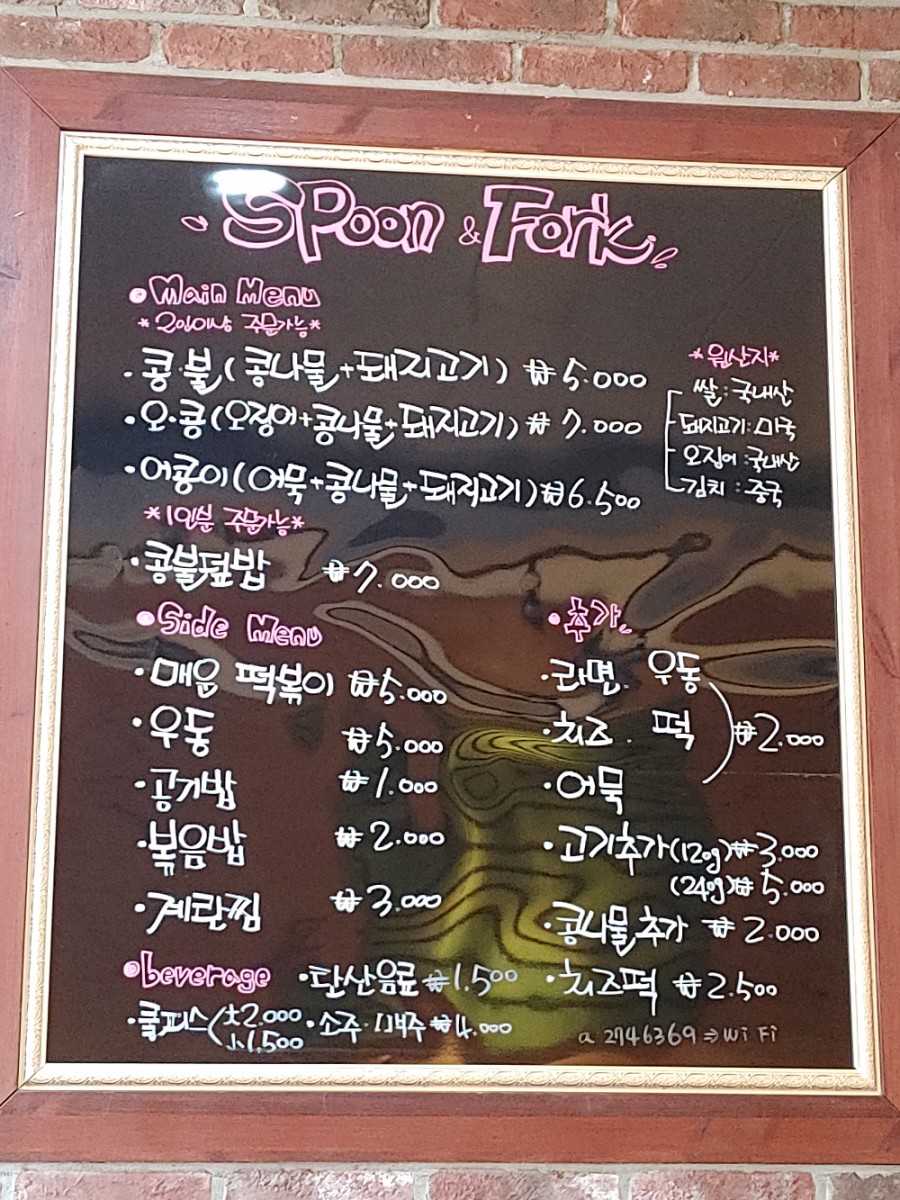 SPoon & Fork
Main Menu
*2인이상 주문가능*
콩·불(콩나물+돼지고기) ₩5.000
오·콩(오징어+콩나물+돼지고기) ₩7.000
어콩이(어묵+콩나물+돼지고기) ₩6.500
*1인분 주문가능*
콩불덮밥 ₩7.000
*원산지*
쌀:국내산
돼지고기:미국
오징어:국내산
김치:중국
Side Menu
매운 떡볶이 ₩5.000
우동 ₩5.000
공기밥 ₩1.000
볶음밥 ₩2.000
계란찜 ₩3.000
추가
라면. 우동
치즈. 떡 ₩2.000
어묵
고기추가(120g)₩3.000
(240g)₩5.000
콩나물추가 ₩2.000
치즈떡 ₩2.500
beverage
탄산음료 ₩1.500
쿨피스 大2.000
小1.500
소주·맥주 ₩4.000
a 2746369⇒WiFi